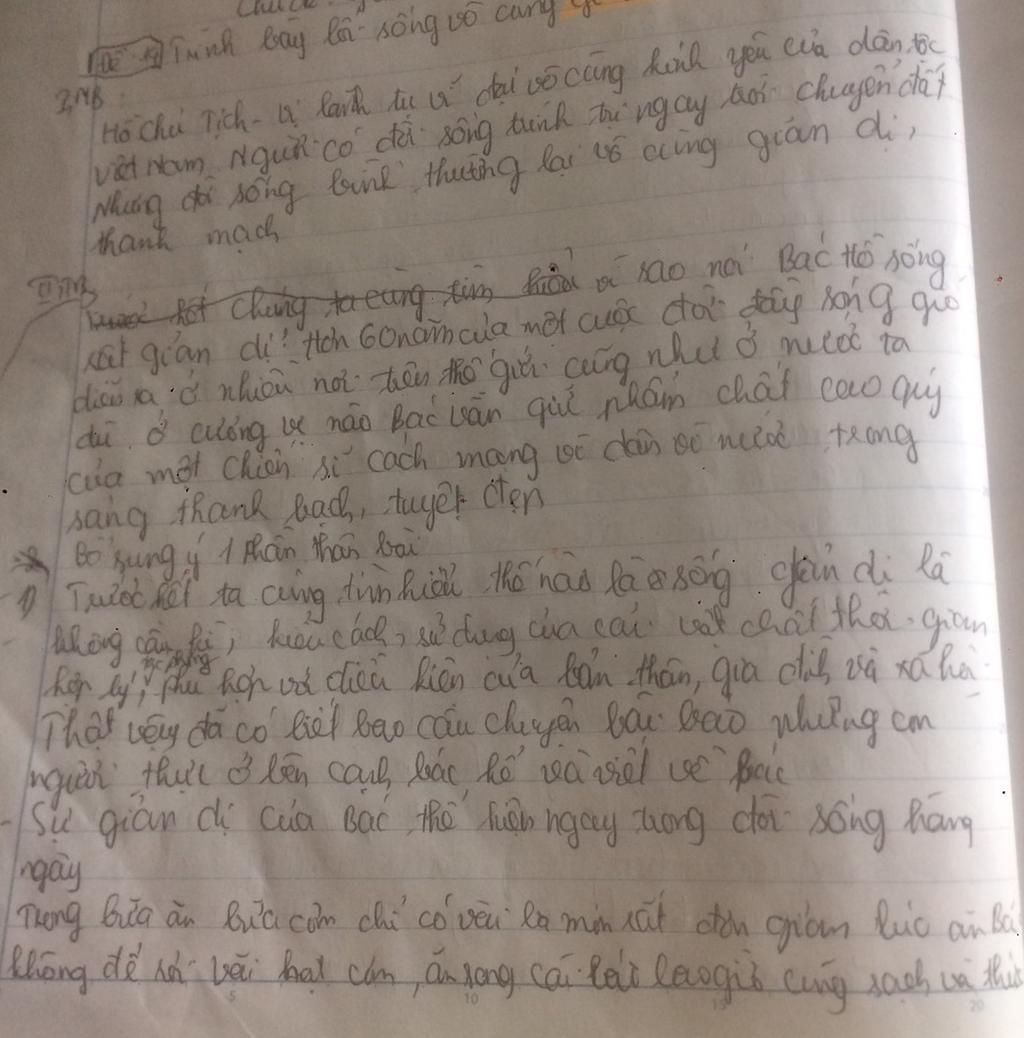 Trình bày lối sống vô cùng
I, MB
Hồ Chủ Tịch - vị lãnh tụ vĩ đại vô cùng kính yêu của dân tộc
Việt Nam, Người có đời sống chính trị ngay trời chuyển đất
Nhưng đời sống bình thường lại vô cùng giản dị,
thanh mạch
II, TB
Trước hết chúng ta cùng tìm hiểu vì sao nói Bác Hồ sống
rất giản dị? Hơn 60 năm của một cuộc đời đầy sóng gió
diễn ra ở nhiều nơi trên thế giới cũng như ở nước ta
dù ở cương vị nào Bác vẫn giữ phẩm chất cao quý
của một chiến sĩ cách mạng vì dân vì nước trong
sáng thanh bạch, tuyệt đẹp
Bổ sung ý 1 phần thân bài
1) Trước hết ta cùng tìm hiểu thế nào là sống giản dị là
không cầu kì, kiểu cách, sử dụng của cải vật chất thời gian
hợp lý, phù hợp với điều kiện của bản thân, gia đình và xã hội
Thật vậy đã có biết bao câu chuyện bài báo những con
người thực ở bên cạnh bác hồ và viết về Bác
- Sự giản dị của Bác thể hiện ngay trong đời sống hàng
ngày
Trong bữa ăn bữa cơm chỉ có vài ba món rất đơn giản lúc ăn Bá
không để rơi vãi hạt cơm, ăn song cái bát bao giờ cũng sạch và thức